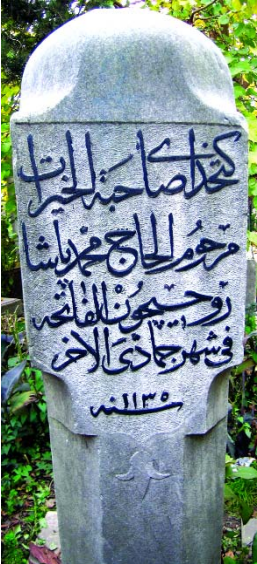 كتخداى صاحبة الخيرات
مرحوم الحاج محمد پاشا
روحيچون الفاتحه
فى شهر جماذى الاخر
سنه ١١٣٥